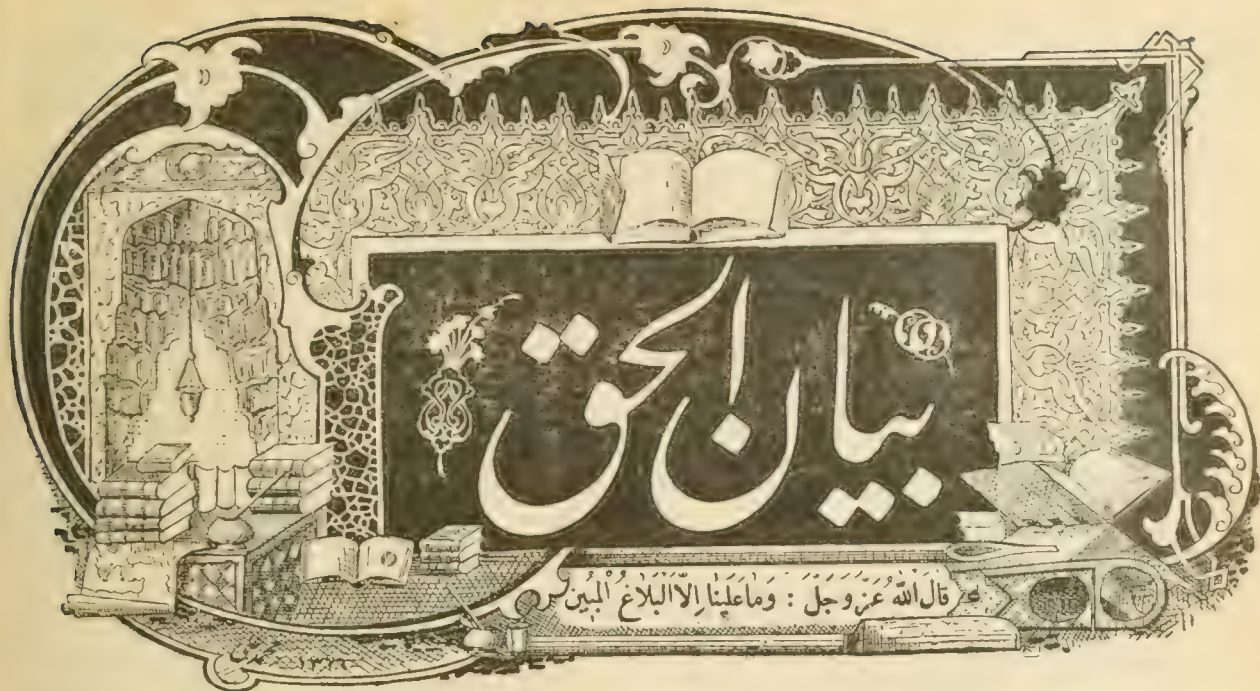 بيان الحق
قال الله عز وجل : وَمَا عَلَيْنَا إِلَّا الْبَلَاغُ الْمُبِين